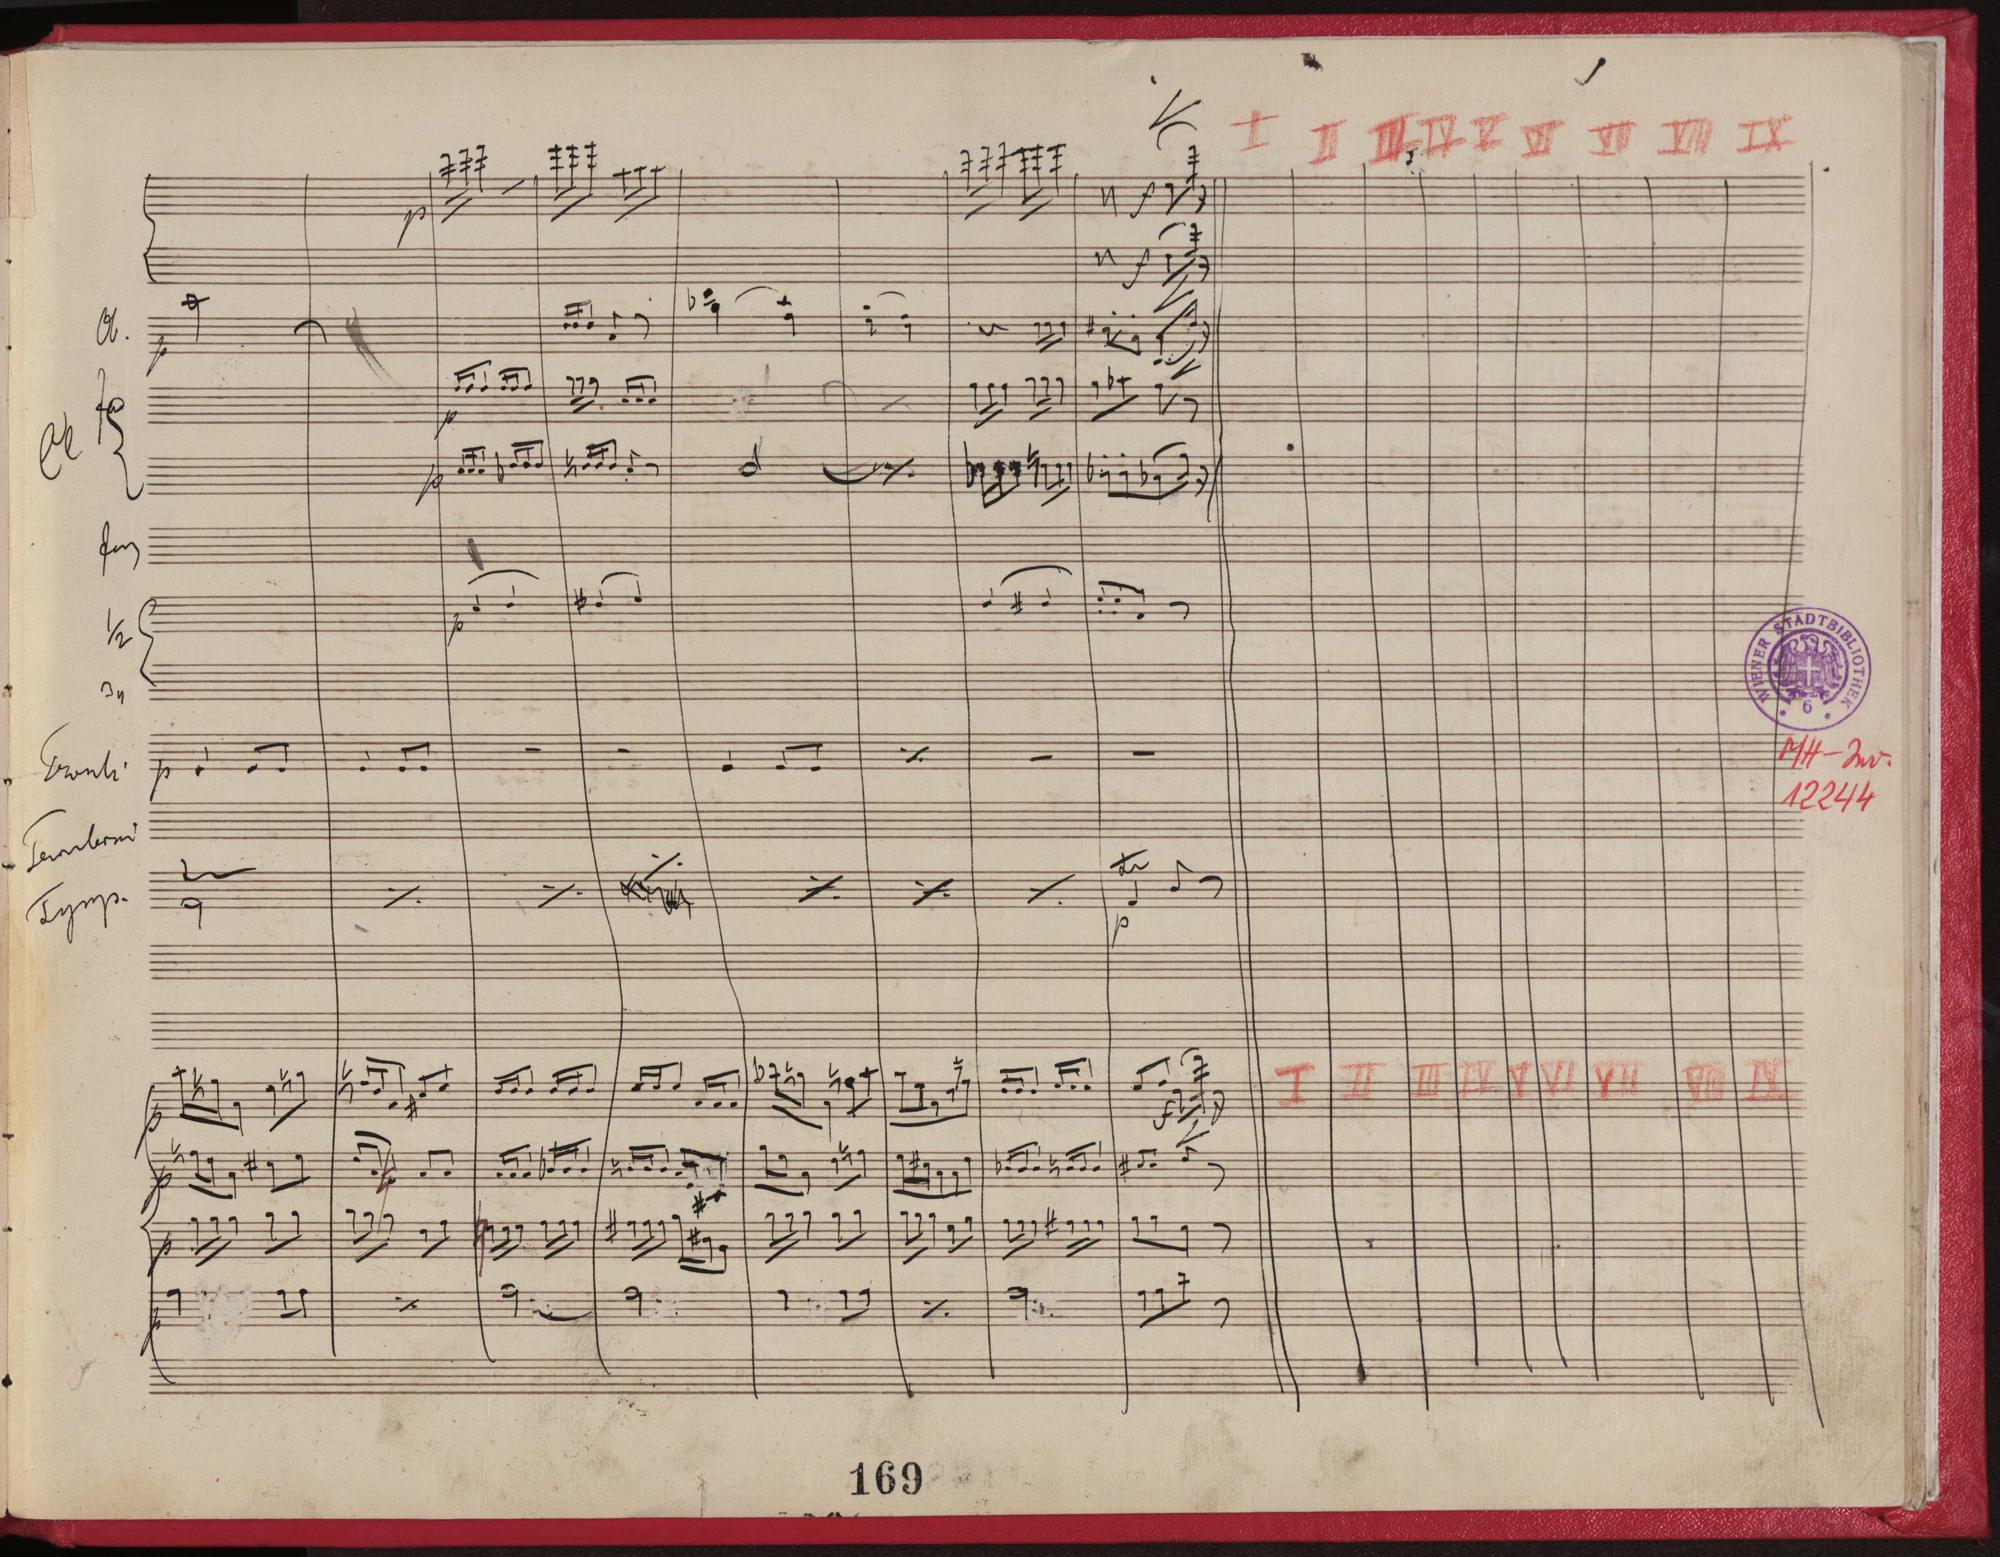 I II III IV V VI VII VIII IX
p
f
f
Ob.
p
p
p
1/2
p
p
Tymp.
p
I II III IV V VI VII VIII IX
p
f
p
p
p
WIENER STADTBIBLIOTHEK
6
MH-Inv.
12244
169